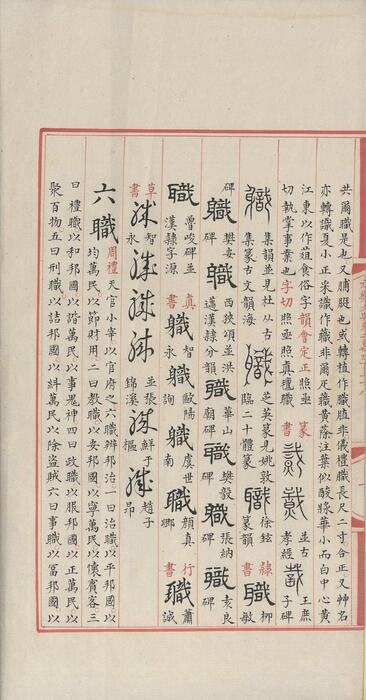 共爾職是也又脯脡也或轉植作職脂非儀禮職長尺二寸合正又艸名
亦轉識夏小正采識作職非爾疋職黄蒢注葉似酸漿華小而白中心黄
江東以作葅食俗字韻會定正照亜 篆 並古 王庶
切執掌事業也字切照亜照真𢷤職 書 孝經 子碑
職 集韻並見杜从古 職 芝英篆見姚敦 職 徐鉉 隸 職 柳
集篆古文韻海 臨二十體篆 篆韻 書 敏
碑 職 樊安 職 西狹頌並洪 職 華山 職 樊毅 職 張納 職 袁良
碑 邁漢隸分韻 廟碑 碑 碑 碑
職 魯峻碑並 真 職 智 職 歐陽 職 虞世 職 顔真 行 職 蕭
漢隸字源 書 永 詢 南 卿 書 誠
草 職 智 職 職 職 並張 職 鮮于 職 趙子
書 永 錦溪 樞 昂
六職 周禮天官小宰以官府之六職辨邦治一曰治職以平邦國以
均萬民以節財用二曰教職以安邦國以寧萬民以懷賓客三
曰禮職以和邦國以諧萬民以事鬼神四曰政職以服邦國以正萬民以
聚百物五曰刑職以詰邦國以糾萬民以除盗賊六曰事職以富邦國以